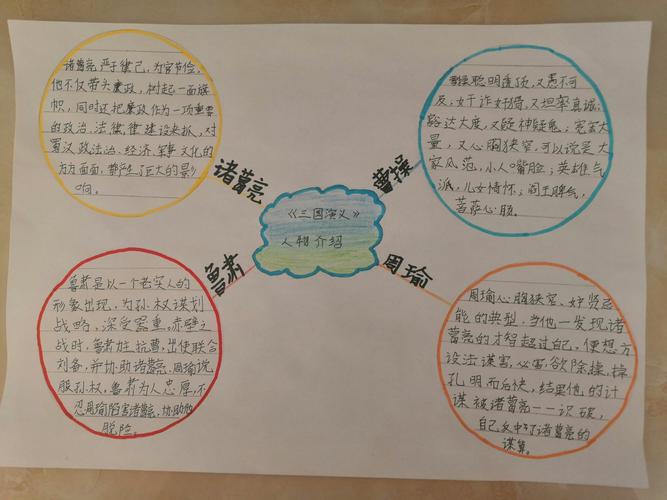 诸葛亮严于律己，为官节俭，
他不仅带头廉政，树起一面旗
帜，同时还把廉政作为一项重要
的政治、法律、律建设来抓，对
蜀汉政法治、经济、军事文化的
方方面面，都产生了巨大的影
响。
诸葛亮
曹操聪明透顶，又愚不可
及；奸诈奸猾，又坦率真诚；
豁达大度，又疑神疑鬼；宽宏大
量，又心胸狭窄，可以说是大
家风范，小人嘴脸；英雄气
派，儿女情怀；阎王脾气，
菩萨心肠。
曹操
《三国演义》
人物介绍
鲁肃
鲁肃是以一个老实人的
形象出现，为孙权谋划
战略，深受器重。赤壁之
战时，鲁肃主抗曹，出使联合
刘备，并协助诸葛亮、周瑜说
服孙权，鲁肃为人忠厚，不
忍周瑜陷害诸葛亮，协助他
脱险。
周瑜
周瑜心胸狭窄、妒贤忌
能的典型，当他一发现诸
葛亮的才智超过自己，便想方
设法谋害，必害，欲除掉，
孔明而后快，结果他的计
谋被诸葛亮一一识破，
自己反中了诸葛亮的
谋算。